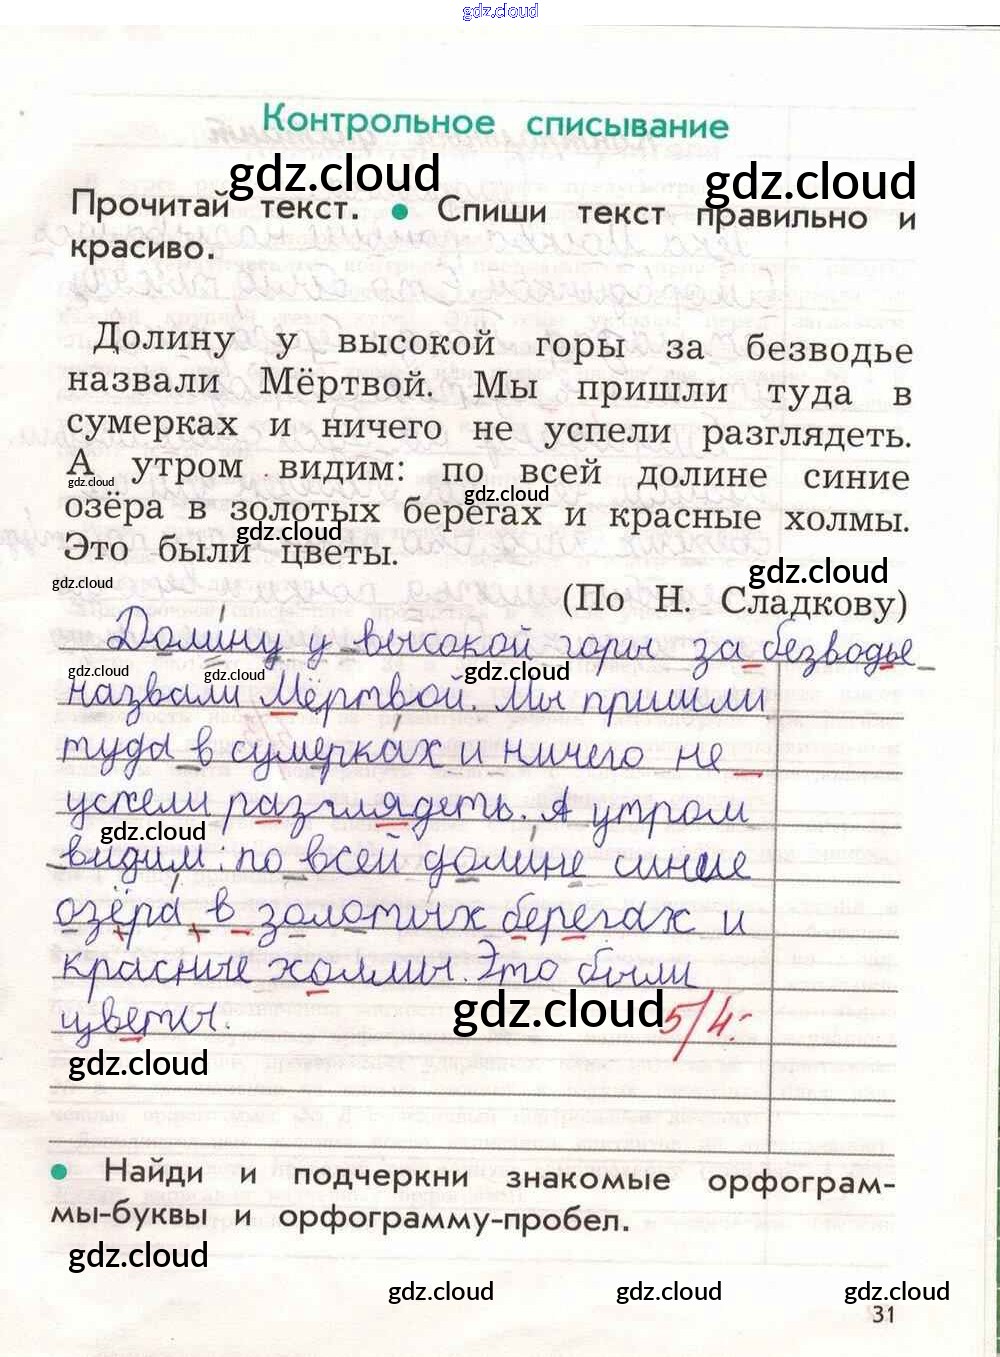 gdz.cloud
Контрольное списывание
gdz.cloud gdz.cloud
Прочитай текст. • Спиши текст правильно и
красиво.
Долину у высокой горы за безводье
назвали Мёртвой. Мы пришли туда в
сумерках и ничего не успели разглядеть.
А утром видим: по всей долине синие
gdz.cloud gdz.cloud
озёра в золотых берегах и красные холмы.
gdz.cloud
Это были цветы.
gdz.cloud gdz.cloud
(По Н. Сладкову)
Долину у высокой горы за безводье
gdz.cloud gdz.cloud gdz.cloud
назвали Мёртвой. Мы пришли
туда в сумерках и ничего не
успели разглядеть. А утром
gdz.cloud
видим: по всей долине синие
озёра в золотых берегах и
красные холмы. Это были
цветы. gdz.cloud 5/4
gdz.cloud
• Найди и подчеркни знакомые орфограм-
мы-буквы и орфограмму-пробел.
gdz.cloud
gdz.cloud gdz.cloud gdz.cloud
31